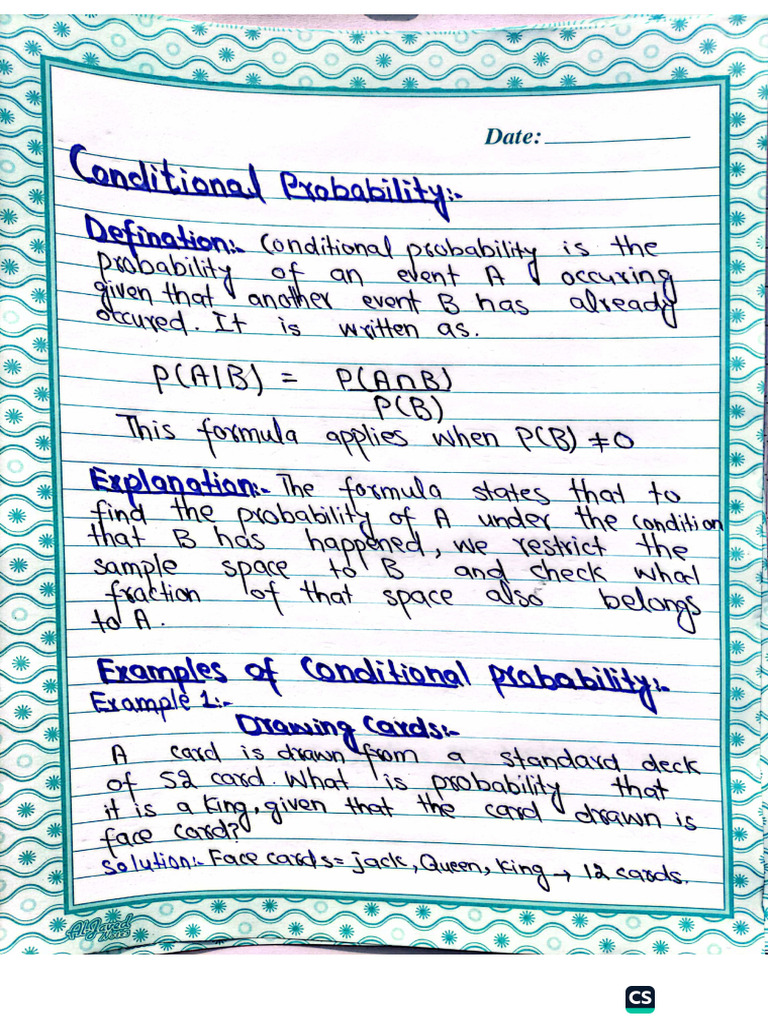 Date:
Conditional Probability:-
Defination:- Conditional probability is the
probability of an event A occuring
given that another event B has already
occured. It is written as.
P(A|B) = P(A∩B)
P(B)
This formula applies when P(B) ≠ 0
Explanation:- The formula states that to
find the probability of A under the condition
that B has happened, we restrict the
sample space to B and check what
fraction of that space also belongs
to A.
Examples of Conditional probability:-
Example 1:-
Drawing Cards:-
A card is drawn from a standard deck
of 52 card. What is probability that
it is a King, given that the card drawn is
face card?
Solution:- Face cards = jack, Queen, King → 12 cards.
Al-Javed
CS